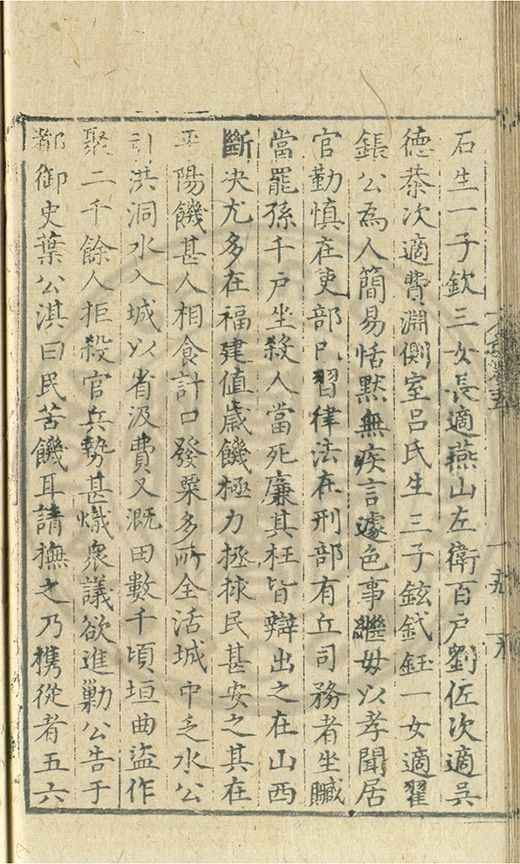 石生一子欽三女長適燕山左衛百戶劉佐次適吳
德恭次適費淵側室呂氏生三子鉉鉞鈺一女適翟
鋹公為人簡易恬默無疾言遽色事繼母以孝聞居
官勤慎在吏部已習律法在刑部有丘司務者坐贓
當罷孫千戶坐殺人當死廉其枉皆辯出之在山西
斷決尤多在福建值歲饑極力拯捄民甚安之其在
平陽饑甚人相食計口發粟多所全活城中乏水公
引洪洞水入城以省汲費又溉田數千頃垣曲盜作
聚二千餘人拒殺官兵勢甚熾衆議欲進勦公告于
都御史葉公淇曰民苦饑耳請撫之乃携從者五六